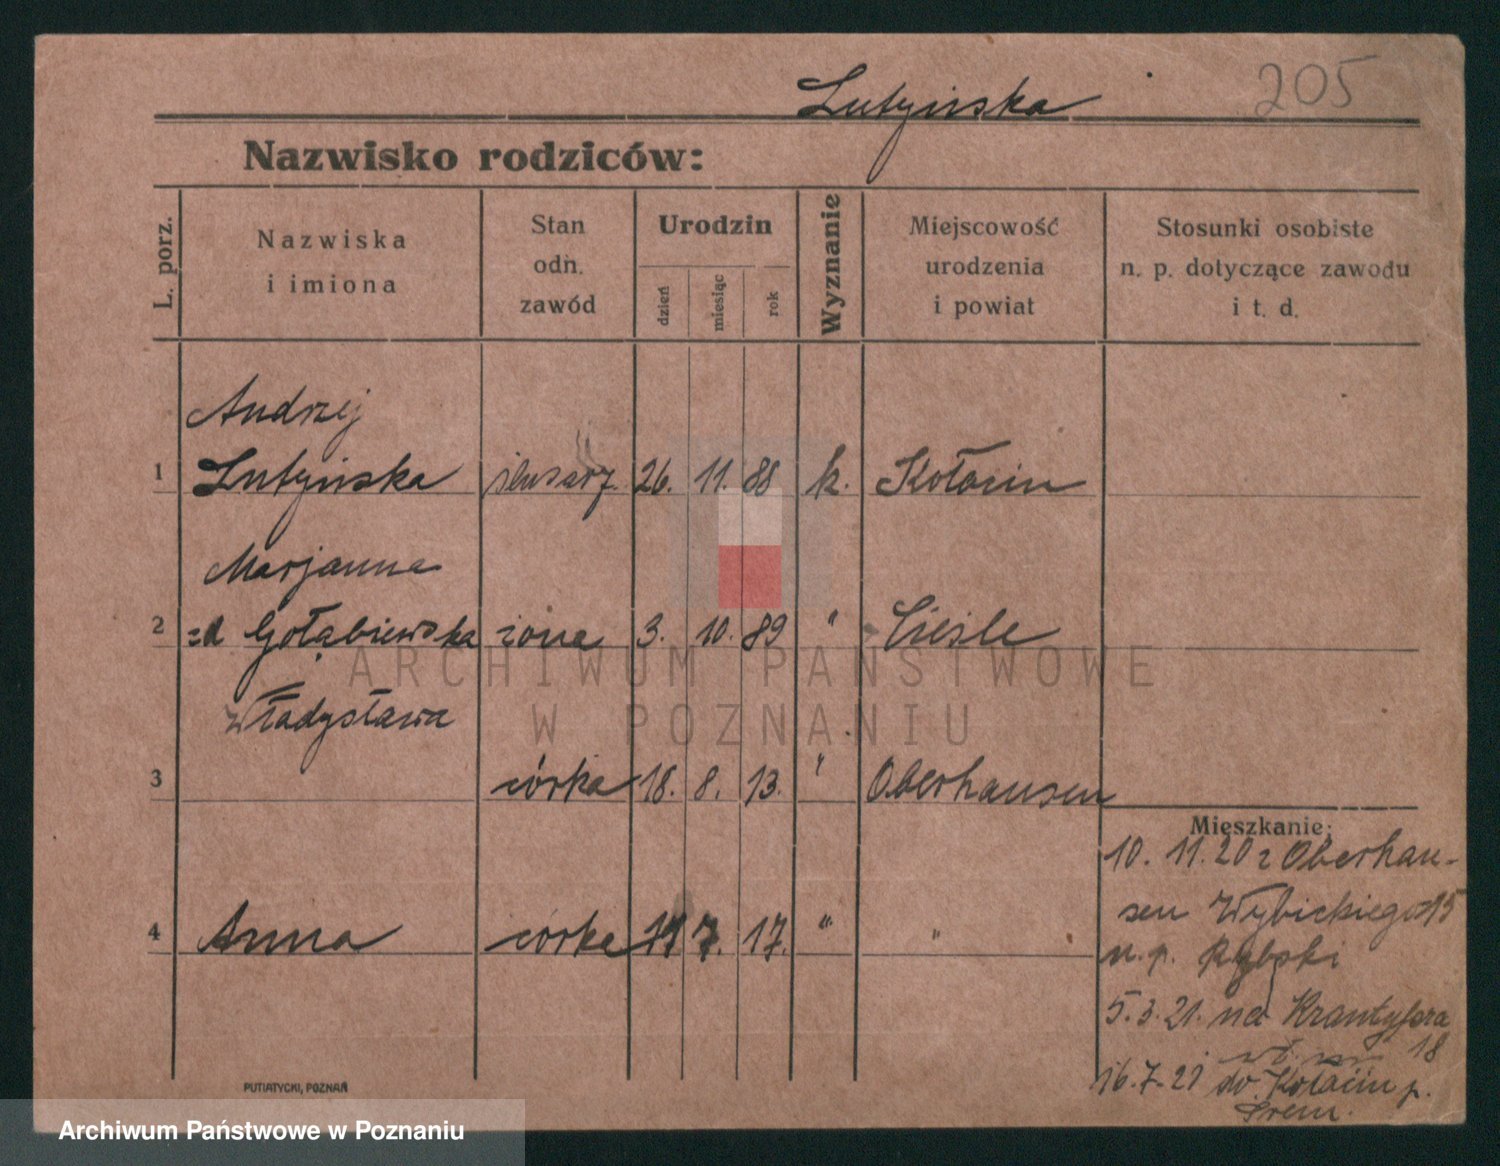 Lutyńska 205
Nazwisko rodziców:
L. porz.
Nazwiska
i imiona
Stan
odn.
zawód
Urodzin
dzień
miesiąc
rok
Wyznanie
Miejscowość
urodzenia
i powiat
Stosunki osobiste
n. p. dotyczące zawodu
i t. d.
Andrzej
1 Lutyńska ślusarz. 26. 11. 88 k. Kołacin
Marjanna
2 zd Gołąbiewska żona 3. 10. 89 " Cieśle
Władysława
3 córka 18. 8. 13. " Oberhausen
4 Anna córka 7. 17. " "
Mieszkanie:
10. 11. 20 z Oberhau-
sen Wybickiego 15
u. p. Rybski
5. 3. 21. na
18
16. 7. 21 do. Kołacin p.
Śrem.
PUTIATYCKI, POZNAŃ
ARCHIWUM PAŃSTWOWE
W POZNANIU
Archiwum Państwowe w Poznaniu